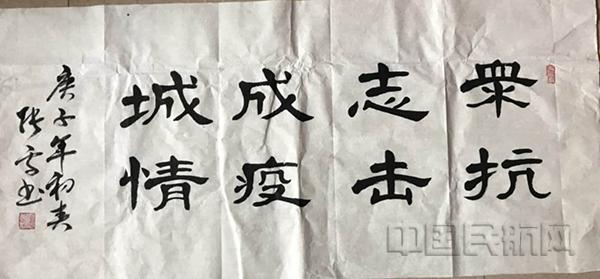 衆志成城
抗击疫情
庚子年初春
张 书
中国民航网